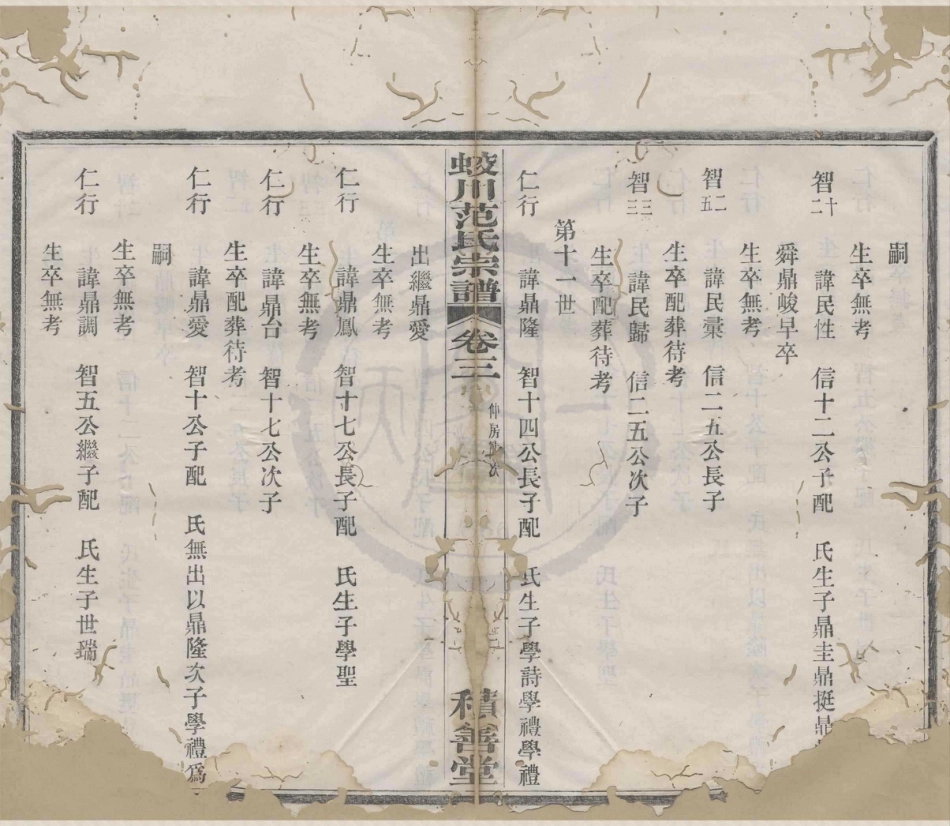 嗣
生卒無考
智十二　諱民性　信十二公子配　氏生子鼎圭鼎挺鼎
舜鼎峻早卒
生卒無考
智二五　諱民彙　信二五公長子
生卒配葬待考
智三三　諱民歸　信二五公次子
生卒配葬待考
第十一世
仁行　諱鼎隆　智十四公長子配　氏生子學詩學禮學禮
蛟川范氏宗譜　卷三　仲房　次　積善堂
出繼鼎愛
生卒無考
仁行　諱鼎鳳　智十七公長子配　氏生子學聖
生卒無考
仁行　諱鼎台　智十七公次子
生卒配葬待考
仁行　諱鼎愛　智十公子配　氏無出以鼎隆次子學禮爲
嗣
生卒無考
仁行　諱鼎調　智五公繼子配　氏生子世瑞
生卒無考